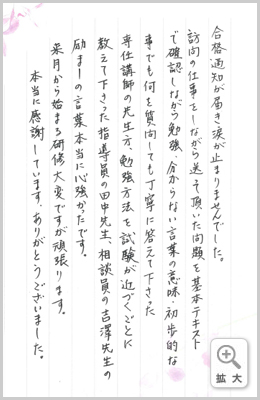 合格通知が届き涙が止まりませんでした。
訪問の仕事をしながら送って頂いた問題を基本テキスト
で確認しながら勉強、分からない言葉の意味・初歩的な
事でも何を質問しても丁寧に答えて下さった
専任講師の先生方、勉強方法を試験が近づくごとに
教えて下さった指導員の田中先生、相談員の吉澤先生の
励ましの言葉本当に心強かったです。
来月から始まる研修大変ですが頑張ります。
本当に感謝しています。ありがとうございました。
拡大